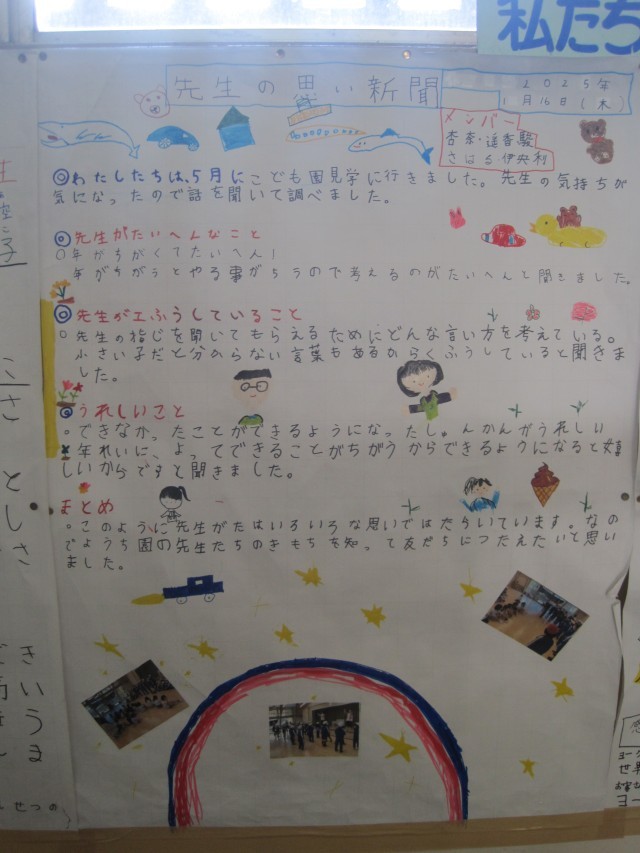 私たち
先生の思い新聞
2025年
1月16日(木)
メンバー
杏奈・遥香
さはら伊央利
◎わたしたちは、5月にこども園見学に行きました。先生の気持ちが
気になったので話を聞いて調べました。
◎先生がたいへんなこと
○年がちがくてたいへん!
年がちがうとやる事がちうので考えるのがたいへんと聞きました。
◎先生が工ふうしていること
○先生の指じを聞いてもらえるためにどんな言い方を考えている。
小さい子だと分のらない言葉もあるのらくふうしていると聞きま
した。
◎うれしいこと
○できなかったことができるようになったしゅんかんがうれしい
年れいに、よってできることがちがうからできるようになると嬉
しいからですと聞きました。
まとめ
○このように先生がたはいろいろな思いではたらいています。なの
でようち園の先生たちのきもちを知って友だちにつたえたいと思い
ました。